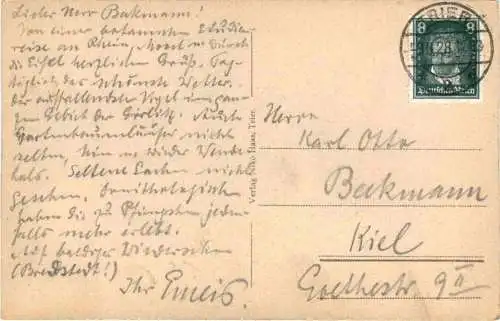 Lieber Herr Beckmann!
Von einer bekannten Studien
reise an Rhein, Mosel u. durch
die Eifel herzlichen Gruß.
das schönste Wetter.
Der auffallendste Vogel im
Gebiet der Girlitz. Auch
Gartenbaumläufer nicht
selten, hin u. wieder Wende
hals. Seltene Sachen nicht
gesehen. Ornithologisch
haben die zu Pfingsten jeden
falls mehr erlebt.
Auf baldiges Wiedersehen
(Bredstedt!)
Ihr Emeis.
Verlag Otto Haas, Trier.
TRIER
8 8
Deutsches Reich
Herrn
Karl Otto
Beckmann
Kiel
Goethestr. 9 II